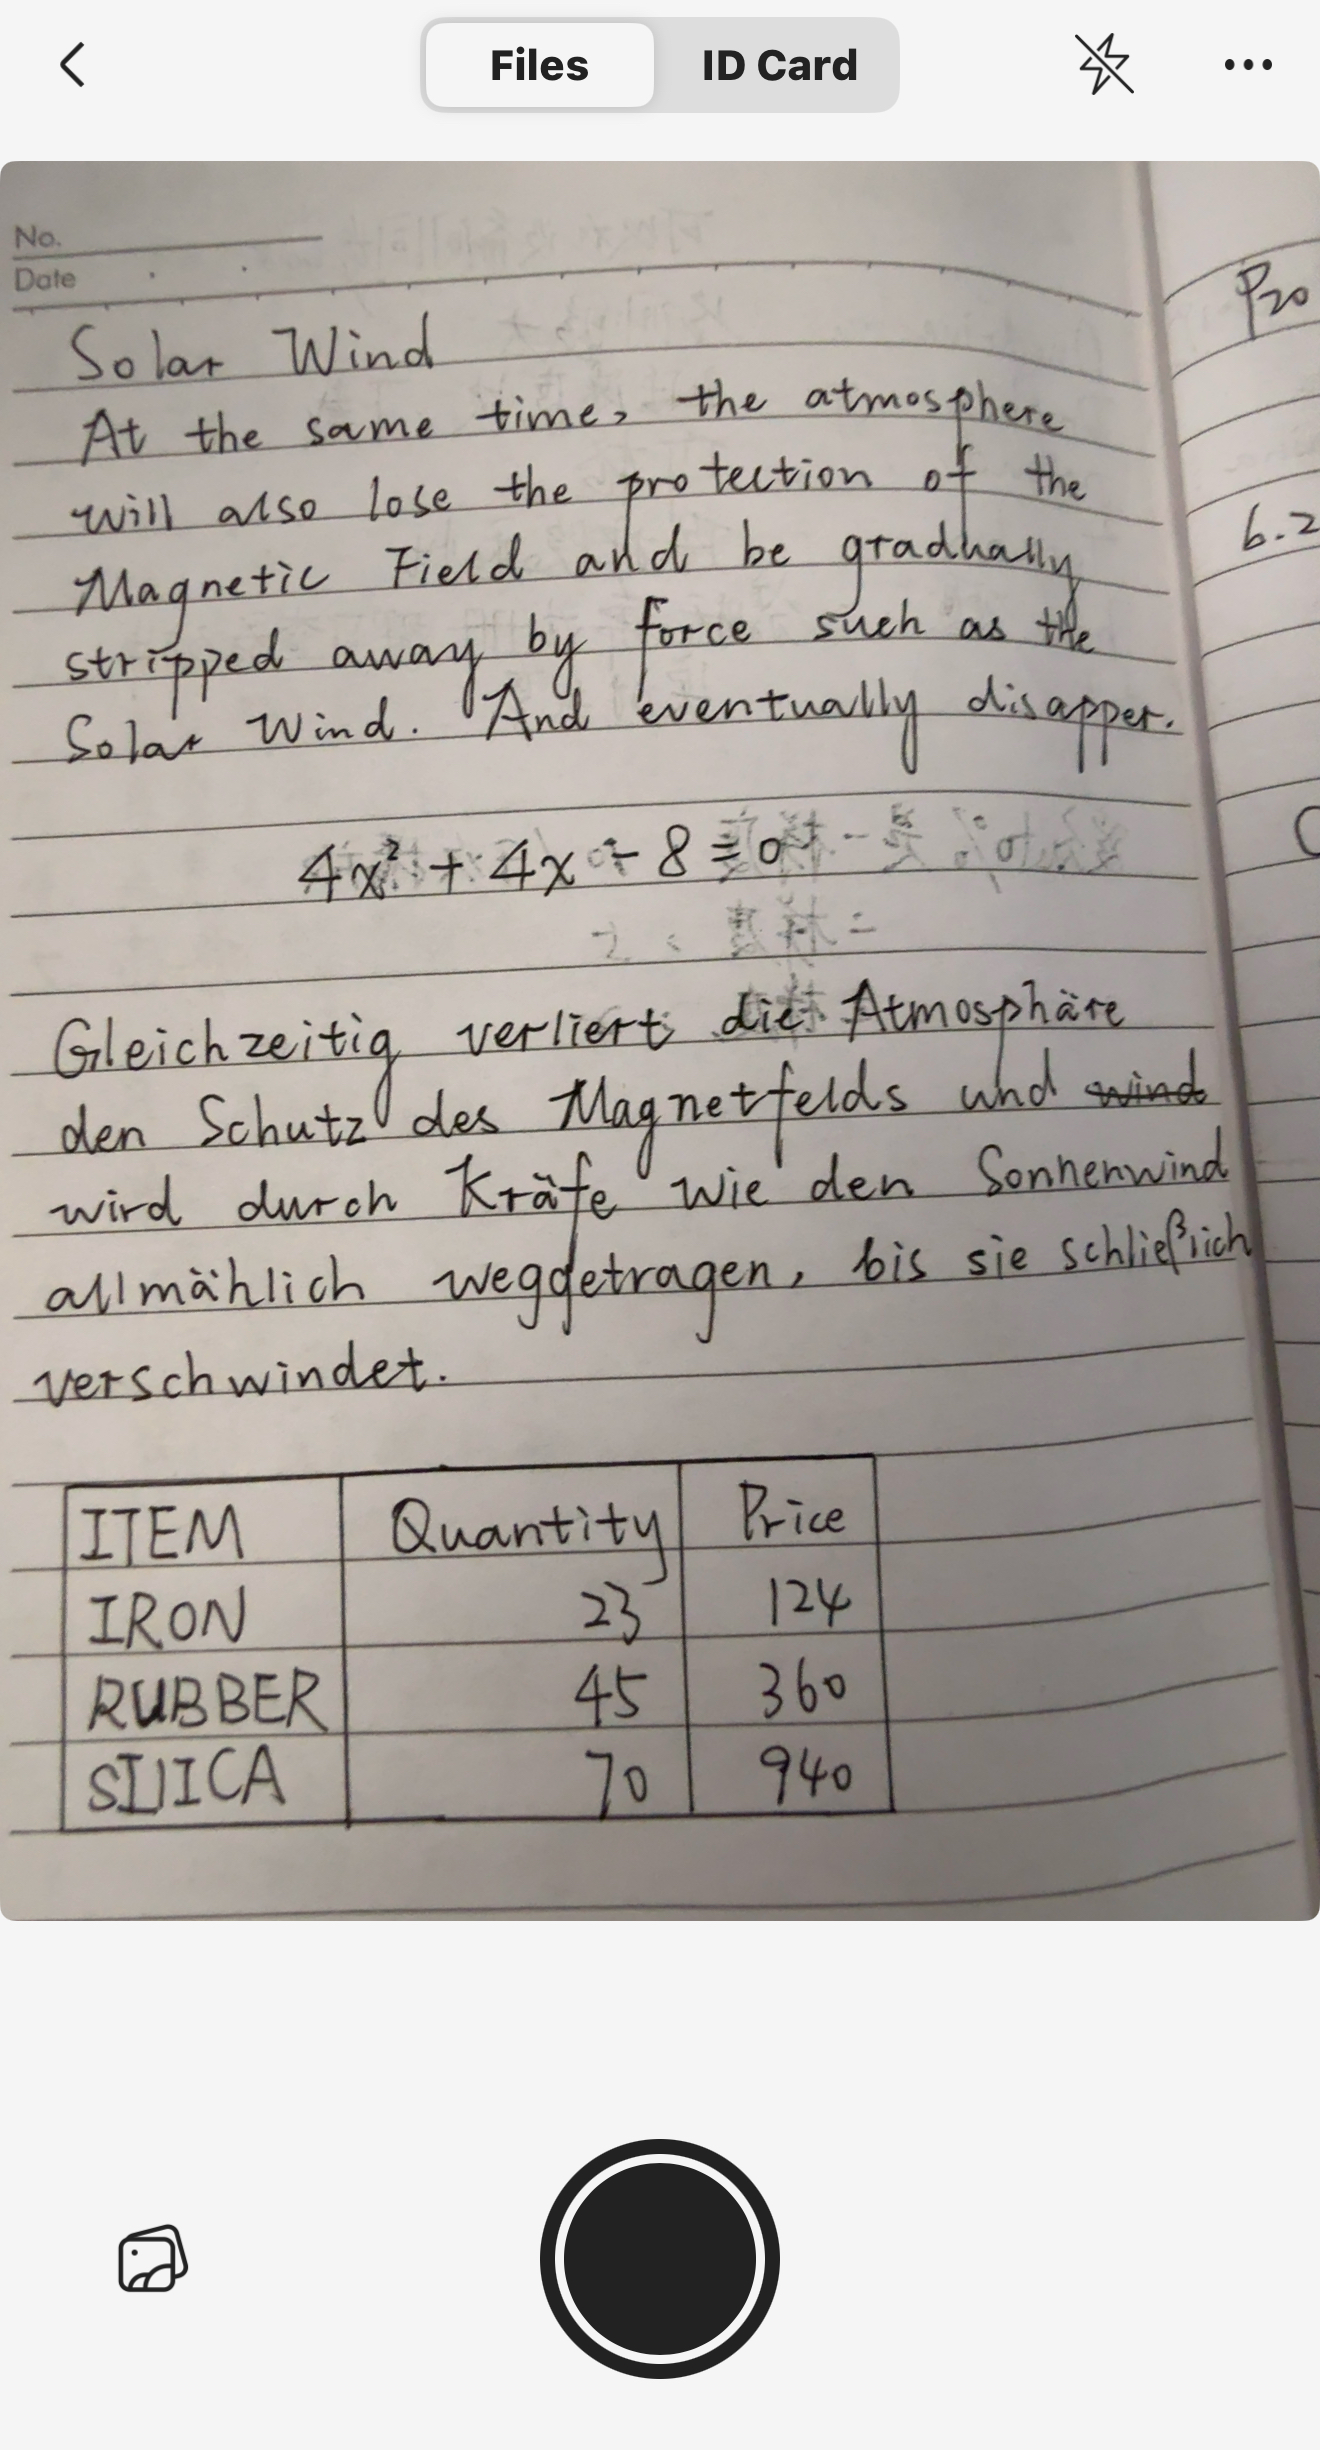 Files
ID Card
No.
Date
Solar Wind
At the same time, the atmosphere
will also lose the protection of the
Magnetic Field and be gradually
stripped away by force such as the
Solar Wind. And eventually disapper.
4x² + 4x ÷ 8 = 0
Gleichzeitig verliert die Atmosphäre
den Schutz des Magnetfelds und wind
wird durch Kräfe wie den Sonnenwind
allmählich weggetragen, bis sie schließlich
verschwindet.
ITEM Quantity Price
IRON 23 124
RUBBER 45 360
SILICA 70 940
P20
6.2